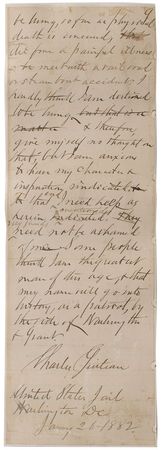 be hung, so far as physical
death is concerned, than
die from a painful illness
or be met with a railroad
or steamboat accident. I
hardly think I am destined
to be hung, but that is a
matter & therefore
give myself no thought on
that, but I am anxious
to have my character &
inspiration vindicated
to that I need help as
herein
need not be ashamed
of me. Some people
think I am the greatest
man of this age, & that
my name will go into
history, as a patriot, by
the side of Washington
& Grant.
Charles Guiteau
United States Jail
Washington DC
Jany 26-1882.